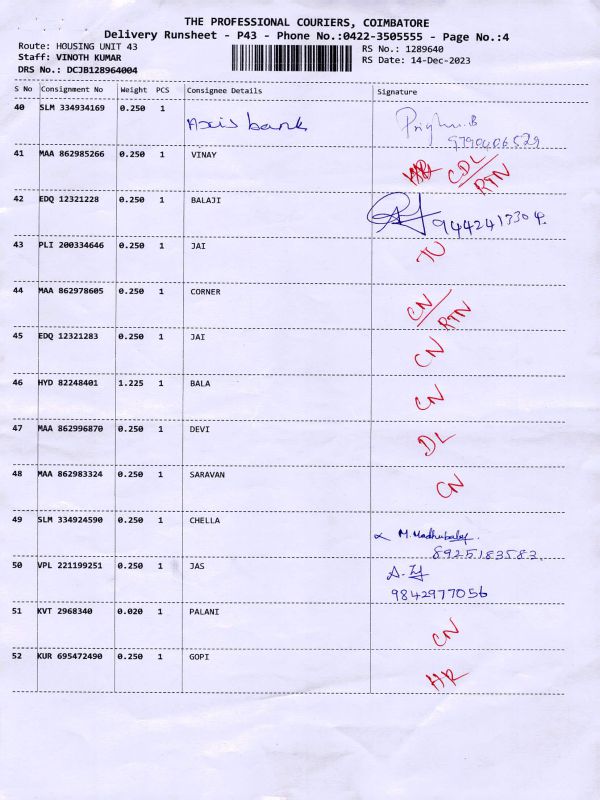 THE PROFESSIONAL COURIERS, COIMBATORE
Delivery Runsheet - P43 - Phone No.:0422-3505555 - Page No.:4
Route: HOUSING UNIT 43 RS No.: 1289640
Staff: VINOTH KUMAR RS Date: 14-Dec-2023
DRS No.: DCJB128964004
S No Consignment No Weight PCS Consignee Details Signature
40 SLM 334934169 0.250 1 Axis bank
9790406529
41 MAA 862985266 0.250 1 VINAY CDL/
RTN
42 EDQ 12321228 0.250 1 BALAJI
9442417304
43 PLI 200334646 0.250 1 JAI
44 MAA 862978605 0.250 1 CORNER CN/
RTN
45 EDQ 12321283 0.250 1 JAI CN
46 HYD 82248401 1.225 1 BALA CN
47 MAA 862996870 0.250 1 DEVI DL
48 MAA 862983324 0.250 1 SARAVAN CN
49 SLM 334924590 0.250 1 CHELLA M. Madhubala
8925183583
50 VPL 221199251 0.250 1 JAS
9842977056
51 KVT 2968340 0.020 1 PALANI CN
52 KUR 695472490 0.250 1 GOPI HR